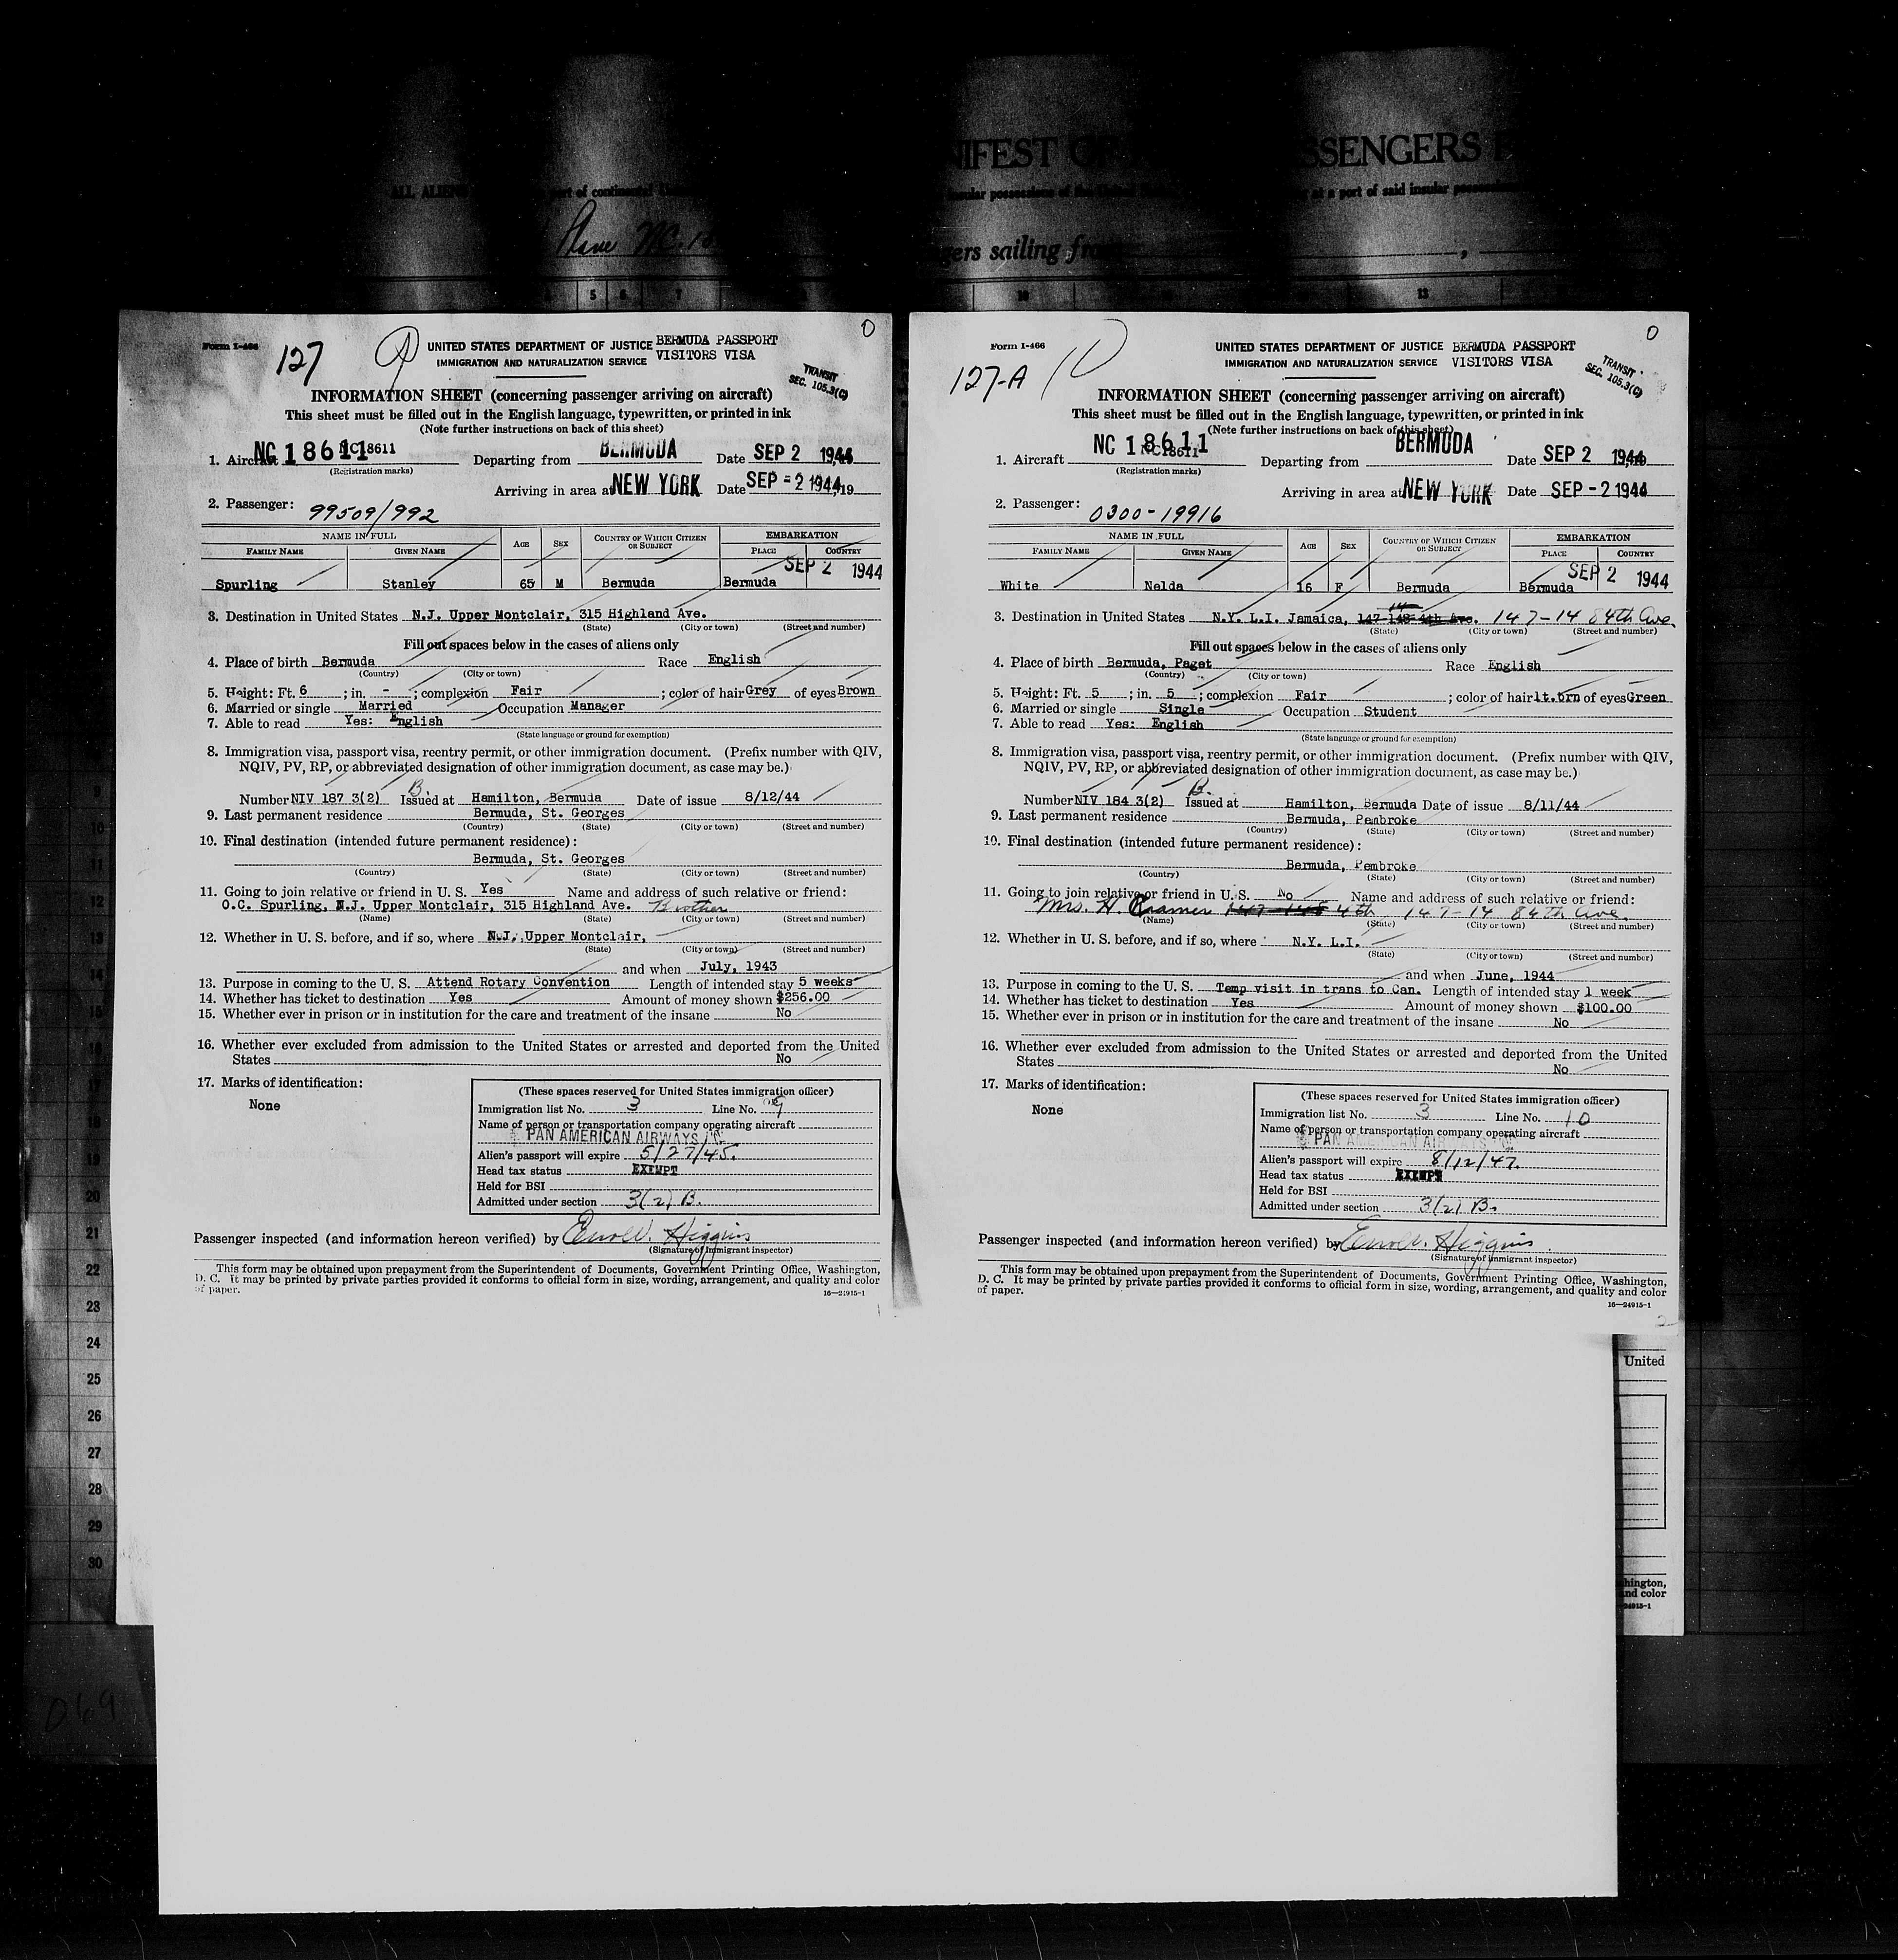 NIFEST OF SSENGERS
ALL ALIENS part of continental
insular possessions of the United at a port of said insular possessions
Plane NC. 18
gers sailing from
5 6 7 10 13
Form I-466
127
9
0
UNITED STATES DEPARTMENT OF JUSTICE
BERMUDA PASSPORT
IMMIGRATION AND NATURALIZATION SERVICE
VISITORS VISA
TRANSIT
SEC. 105.3(C)
INFORMATION SHEET (concerning passenger arriving on aircraft)
This sheet must be filled out in the English language, typewritten, or printed in ink
(Note further instructions on back of this sheet)
1. Aircraft NC 18611 NC18611 Departing from BERMUDA Date SEP 2 1944
(Registration marks)
Arriving in area at NEW YORK Date SEP - 2 1944, 19
2. Passenger: 99509/992
NAME IN FULL AGE SEX COUNTRY OF WHICH CITIZEN OR SUBJECT EMBARKATION
FAMILY NAME GIVEN NAME PLACE COUNTRY
SEP 2 1944
Spurling Stanley 65 M Bermuda Bermuda
3. Destination in United States N.J. Upper Montclair, 315 Highland Ave.
(State) (City or town) (Street and number)
Fill out spaces below in the cases of aliens only
4. Place of birth Bermuda Race English
(Country) (City or town)
5. Height: Ft. 6 ; in. - ; complexion Fair ; color of hair Grey of eyes Brown
6. Married or single Married Occupation Manager
7. Able to read Yes: English
(State language or ground for exemption)
8. Immigration visa, passport visa, reentry permit, or other immigration document. (Prefix number with QIV,
NQIV, PV, RP, or abbreviated designation of other immigration document, as case may be.)
B.
Number NIV 187 3(2) Issued at Hamilton, Bermuda Date of issue 8/12/44
9. Last permanent residence Bermuda, St. Georges
(Country) (State) (City or town) (Street and number)
10. Final destination (intended future permanent residence):
Bermuda, St. Georges
(Country) (State) (City or town) (Street and number)
11. Going to join relative or friend in U. S. Yes Name and address of such relative or friend:
O.C. Spurling, N.J. Upper Montclair, 315 Highland Ave. Brother
(Name) (State) (City or town) (Street and number)
12. Whether in U. S. before, and if so, where N.J., Upper Montclair,
(State) (City or town) (Street and number)
and when July, 1943
13. Purpose in coming to the U. S. Attend Rotary Convention Length of intended stay 5 weeks
14. Whether has ticket to destination Yes Amount of money shown $256.00
15. Whether ever in prison or in institution for the care and treatment of the insane No
16. Whether ever excluded from admission to the United States or arrested and deported from the United
States No
17. Marks of identification:
None
(These spaces reserved for United States immigration officer)
Immigration list No. 3 Line No. 9
Name of person or transportation company operating aircraft
PAN AMERICAN AIRWAYS
Alien's passport will expire 5/27/45.
Head tax status EXEMPT
Held for BSI
Admitted under section 3(2) B.
Passenger inspected (and information hereon verified) by Errol W. Higgins
(Signature of immigrant inspector)
This form may be obtained upon prepayment from the Superintendent of Documents, Government Printing Office, Washington,
D. C. It may be printed by private parties provided it conforms to official form in size, wording, arrangement, and quality and color
of paper.
16—24915-1
Form I-466
127-A
10
0
UNITED STATES DEPARTMENT OF JUSTICE
BERMUDA PASSPORT
IMMIGRATION AND NATURALIZATION SERVICE
VISITORS VISA
TRANSIT
SEC. 105.3(C)
INFORMATION SHEET (concerning passenger arriving on aircraft)
This sheet must be filled out in the English language, typewritten, or printed in ink
(Note further instructions on back of this sheet)
1. Aircraft NC 18611 NC18611 Departing from BERMUDA Date SEP 2 1944
(Registration marks)
Arriving in area at NEW YORK Date SEP - 2 1944
2. Passenger: 0300-19916
NAME IN FULL AGE SEX COUNTRY OF WHICH CITIZEN OR SUBJECT EMBARKATION
FAMILY NAME GIVEN NAME PLACE COUNTRY
SEP 2 1944
White Nelda 16 F Bermuda Bermuda
3. Destination in United States N.Y. L.I. Jamaica, 147-148 4th Ave. 147-14 84th Ave.
(State) (City or town) (Street and number)
Fill out spaces below in the cases of aliens only
4. Place of birth Bermuda, Paget Race English
(Country) (City or town)
5. Height: Ft. 5 ; in. 5 ; complexion Fair ; color of hair lt.brn of eyes Green
6. Married or single Single Occupation Student
7. Able to read Yes: English
(State language or ground for exemption)
8. Immigration visa, passport visa, reentry permit, or other immigration document. (Prefix number with QIV,
NQIV, PV, RP, or abbreviated designation of other immigration document, as case may be.)
B.
Number NIV 184 3(2) Issued at Hamilton, Bermuda Date of issue 8/11/44
9. Last permanent residence Bermuda, Pembroke
(Country) (State) (City or town) (Street and number)
10. Final destination (intended future permanent residence):
Bermuda, Pembroke
(Country) (State) (City or town) (Street and number)
11. Going to join relative or friend in U. S. No Name and address of such relative or friend:
Mrs. H. Cramer 147-148 4th 147-14 84th Ave.
(Name) (State) (City or town) (Street and number)
12. Whether in U. S. before, and if so, where N.Y. L.I.
(State) (City or town) (Street and number)
and when June, 1944
13. Purpose in coming to the U. S. Temp visit in trans to Can. Length of intended stay 1 week
14. Whether has ticket to destination Yes Amount of money shown $100.00
15. Whether ever in prison or in institution for the care and treatment of the insane No
16. Whether ever excluded from admission to the United States or arrested and deported from the United
States No
17. Marks of identification:
None
(These spaces reserved for United States immigration officer)
Immigration list No. 3 Line No. 10
Name of person or transportation company operating aircraft
PAN AMERICAN AIRWAYS
Alien's passport will expire 8/12/47.
Head tax status EXEMPT
Held for BSI
Admitted under section 3(2) B.
Passenger inspected (and information hereon verified) by Errol W. Higgins.
(Signature of immigrant inspector)
This form may be obtained upon prepayment from the Superintendent of Documents, Government Printing Office, Washington,
D. C. It may be printed by private parties provided it conforms to official form in size, wording, arrangement, and quality and color
of paper.
16—24915-1
2
United
hington,
and color
24915-1
9
10
11
12
13
14
15
16
17
18
19
20
21
22
23
24
25
26
27
28
29
30
069